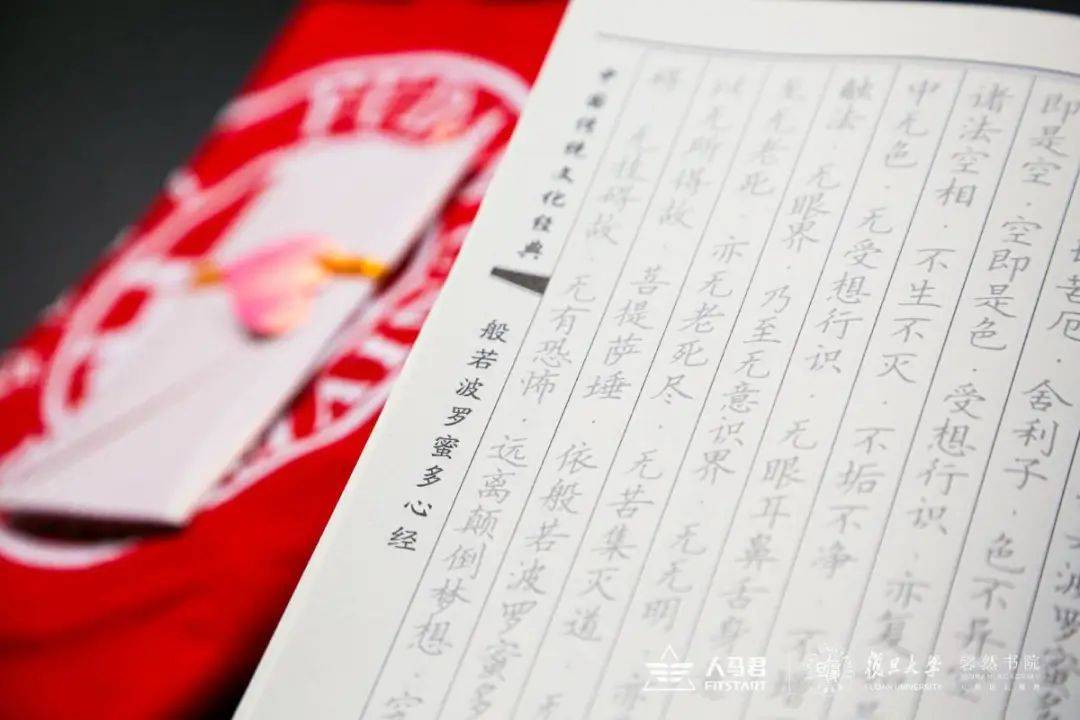 波罗蜜多
苦厄·舍利子·色不异
即是空·空即是色·受想行识·亦复
诸法空相·不生不灭·不垢不净·不
中无色·无受想行识·无眼耳鼻舌身
触法·无眼界·乃至无意识界·无无明·亦
至无老死·亦无老死尽·无苦集灭道·无
以无所得故·菩提萨埵·依般若波罗蜜多
碍·无挂碍故·无有恐怖·远离颠倒梦想
中国传统文化经典
般若波罗蜜多心经
人马君
FITSTART
復旦大学
FUDAN UNIVERSITY
书院